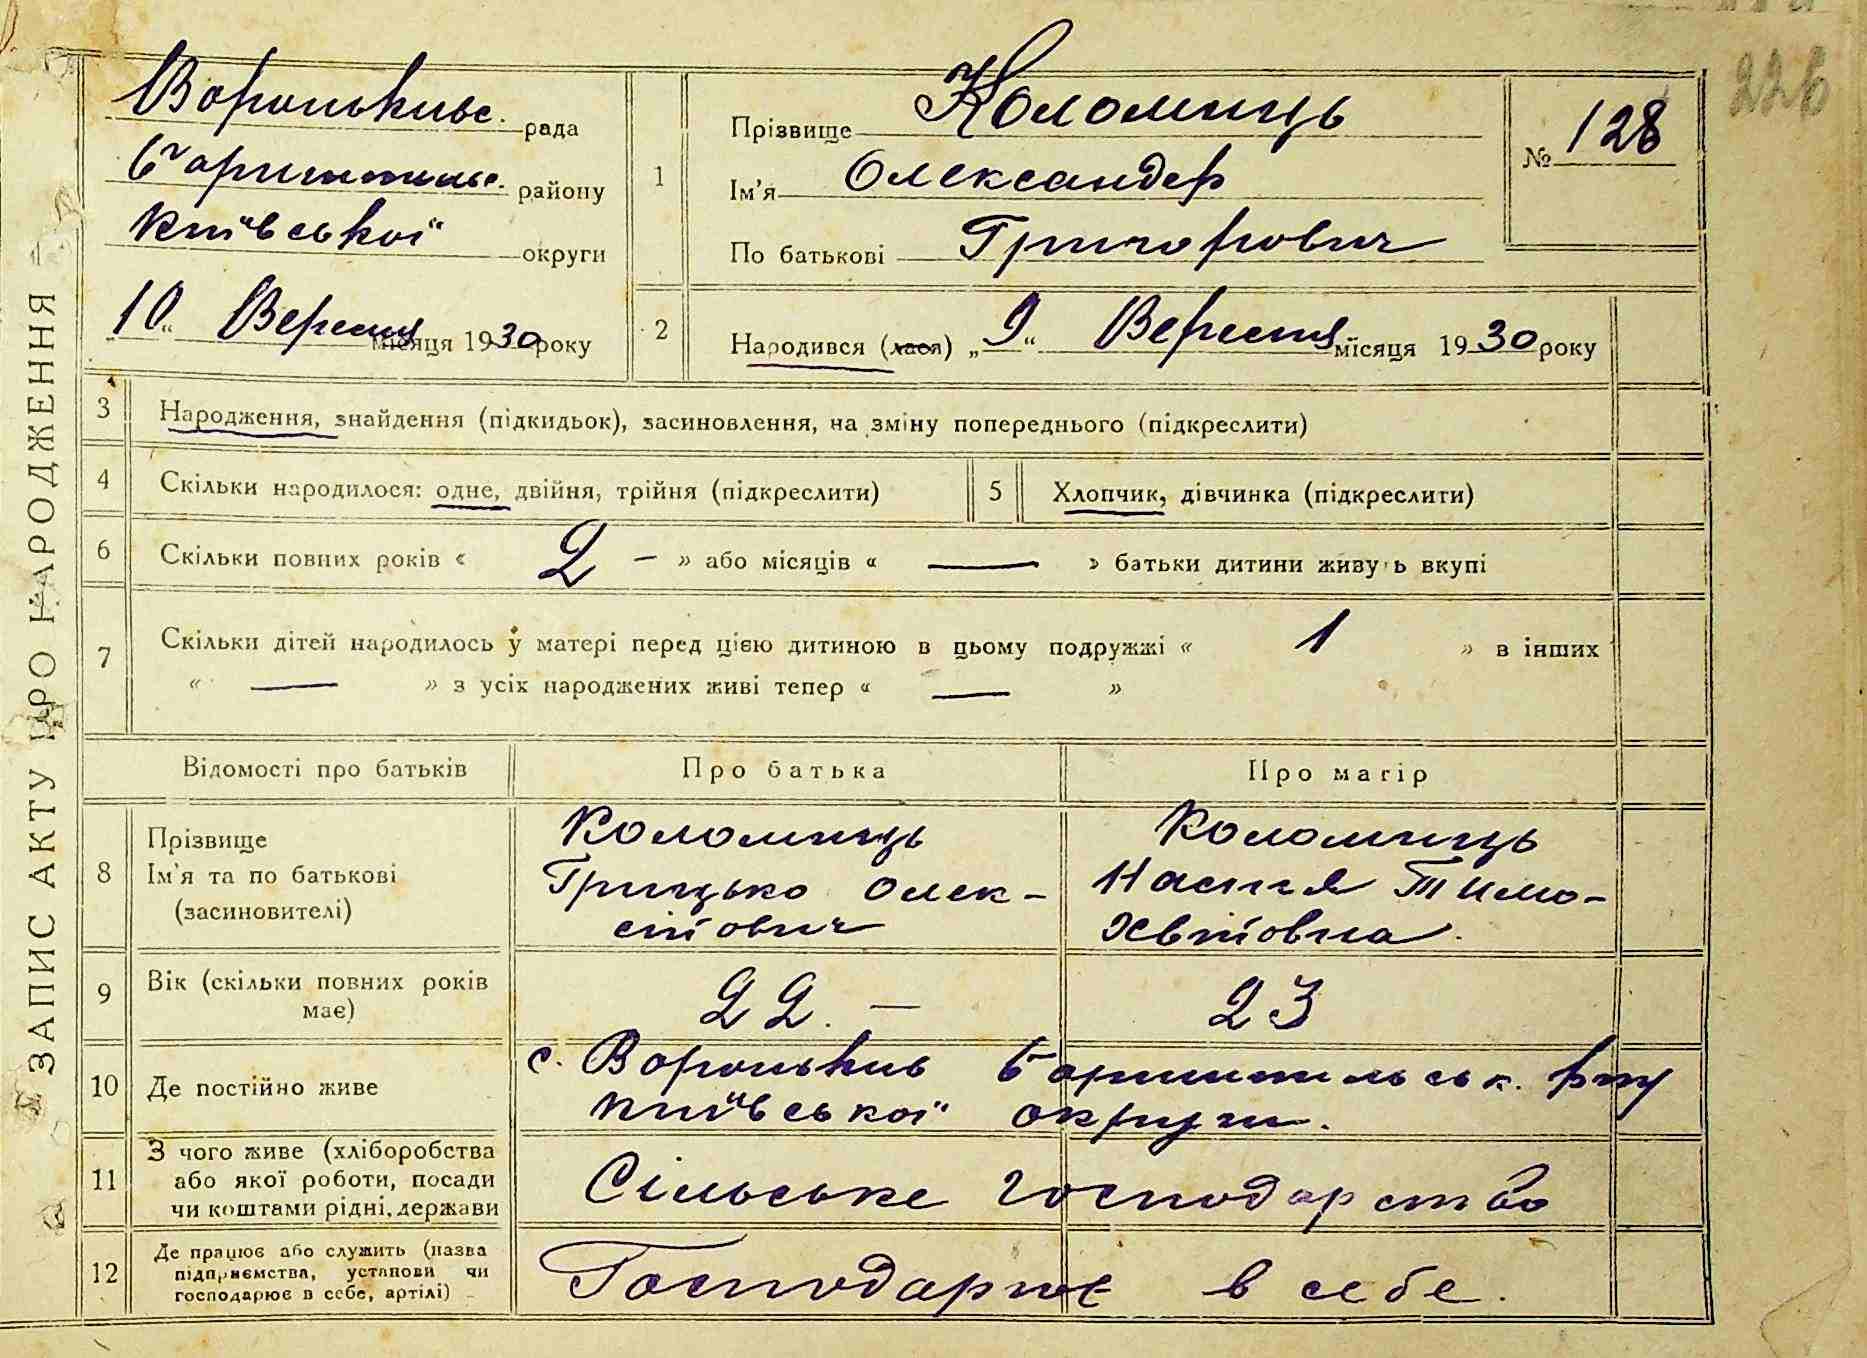 226
ЗАПИС АКТУ ПРО НАРОДЖЕННЯ
Вороньківс. рада
Баришпільс. району
Київської округи
10 " Вересня місяця 1930 року
1
Прізвище Коломиць
Ім'я Олександер
По батькові Григорович
№ 128
2
Народився (лася) „ 9 " Вересня місяця 1930 року
3 Народження, знайдення (підкидьок), засиновлення, на зміну попереднього (підкреслити)
4 Скільки народилося: одне, двійня, трійня (підкреслити)
5 Хлопчик, дівчинка (підкреслити)
6 Скільки повних років « 2 — » або місяців « — » батьки дитини живуть вкупі
7 Скільки дітей народилось у матері перед цією дитиною в цьому подружжі « 1 » в інших
« — » з усіх народжених живі тепер « — »
Відомості про батьків
Про батька
Про матір
8
Прізвище
Ім'я та по батькові
(засиновителі)
Коломиць
Грицько Олек-
сійович
Коломиць
Настя Тимо-
хвіївна.
9
Вік (скільки повних років
має)
22. —
23
10 Де постійно живе
с. Вороньків Баришпільськ. р-ну
Київської округи.
11
З чого живе (хліборобства
або якої роботи, посади
чи коштами рідні, держави
Сільське господарство
12
Де працює або служить (назва
підприємства, установи чи
господарює в себе, артілі)
Господарює в себе.